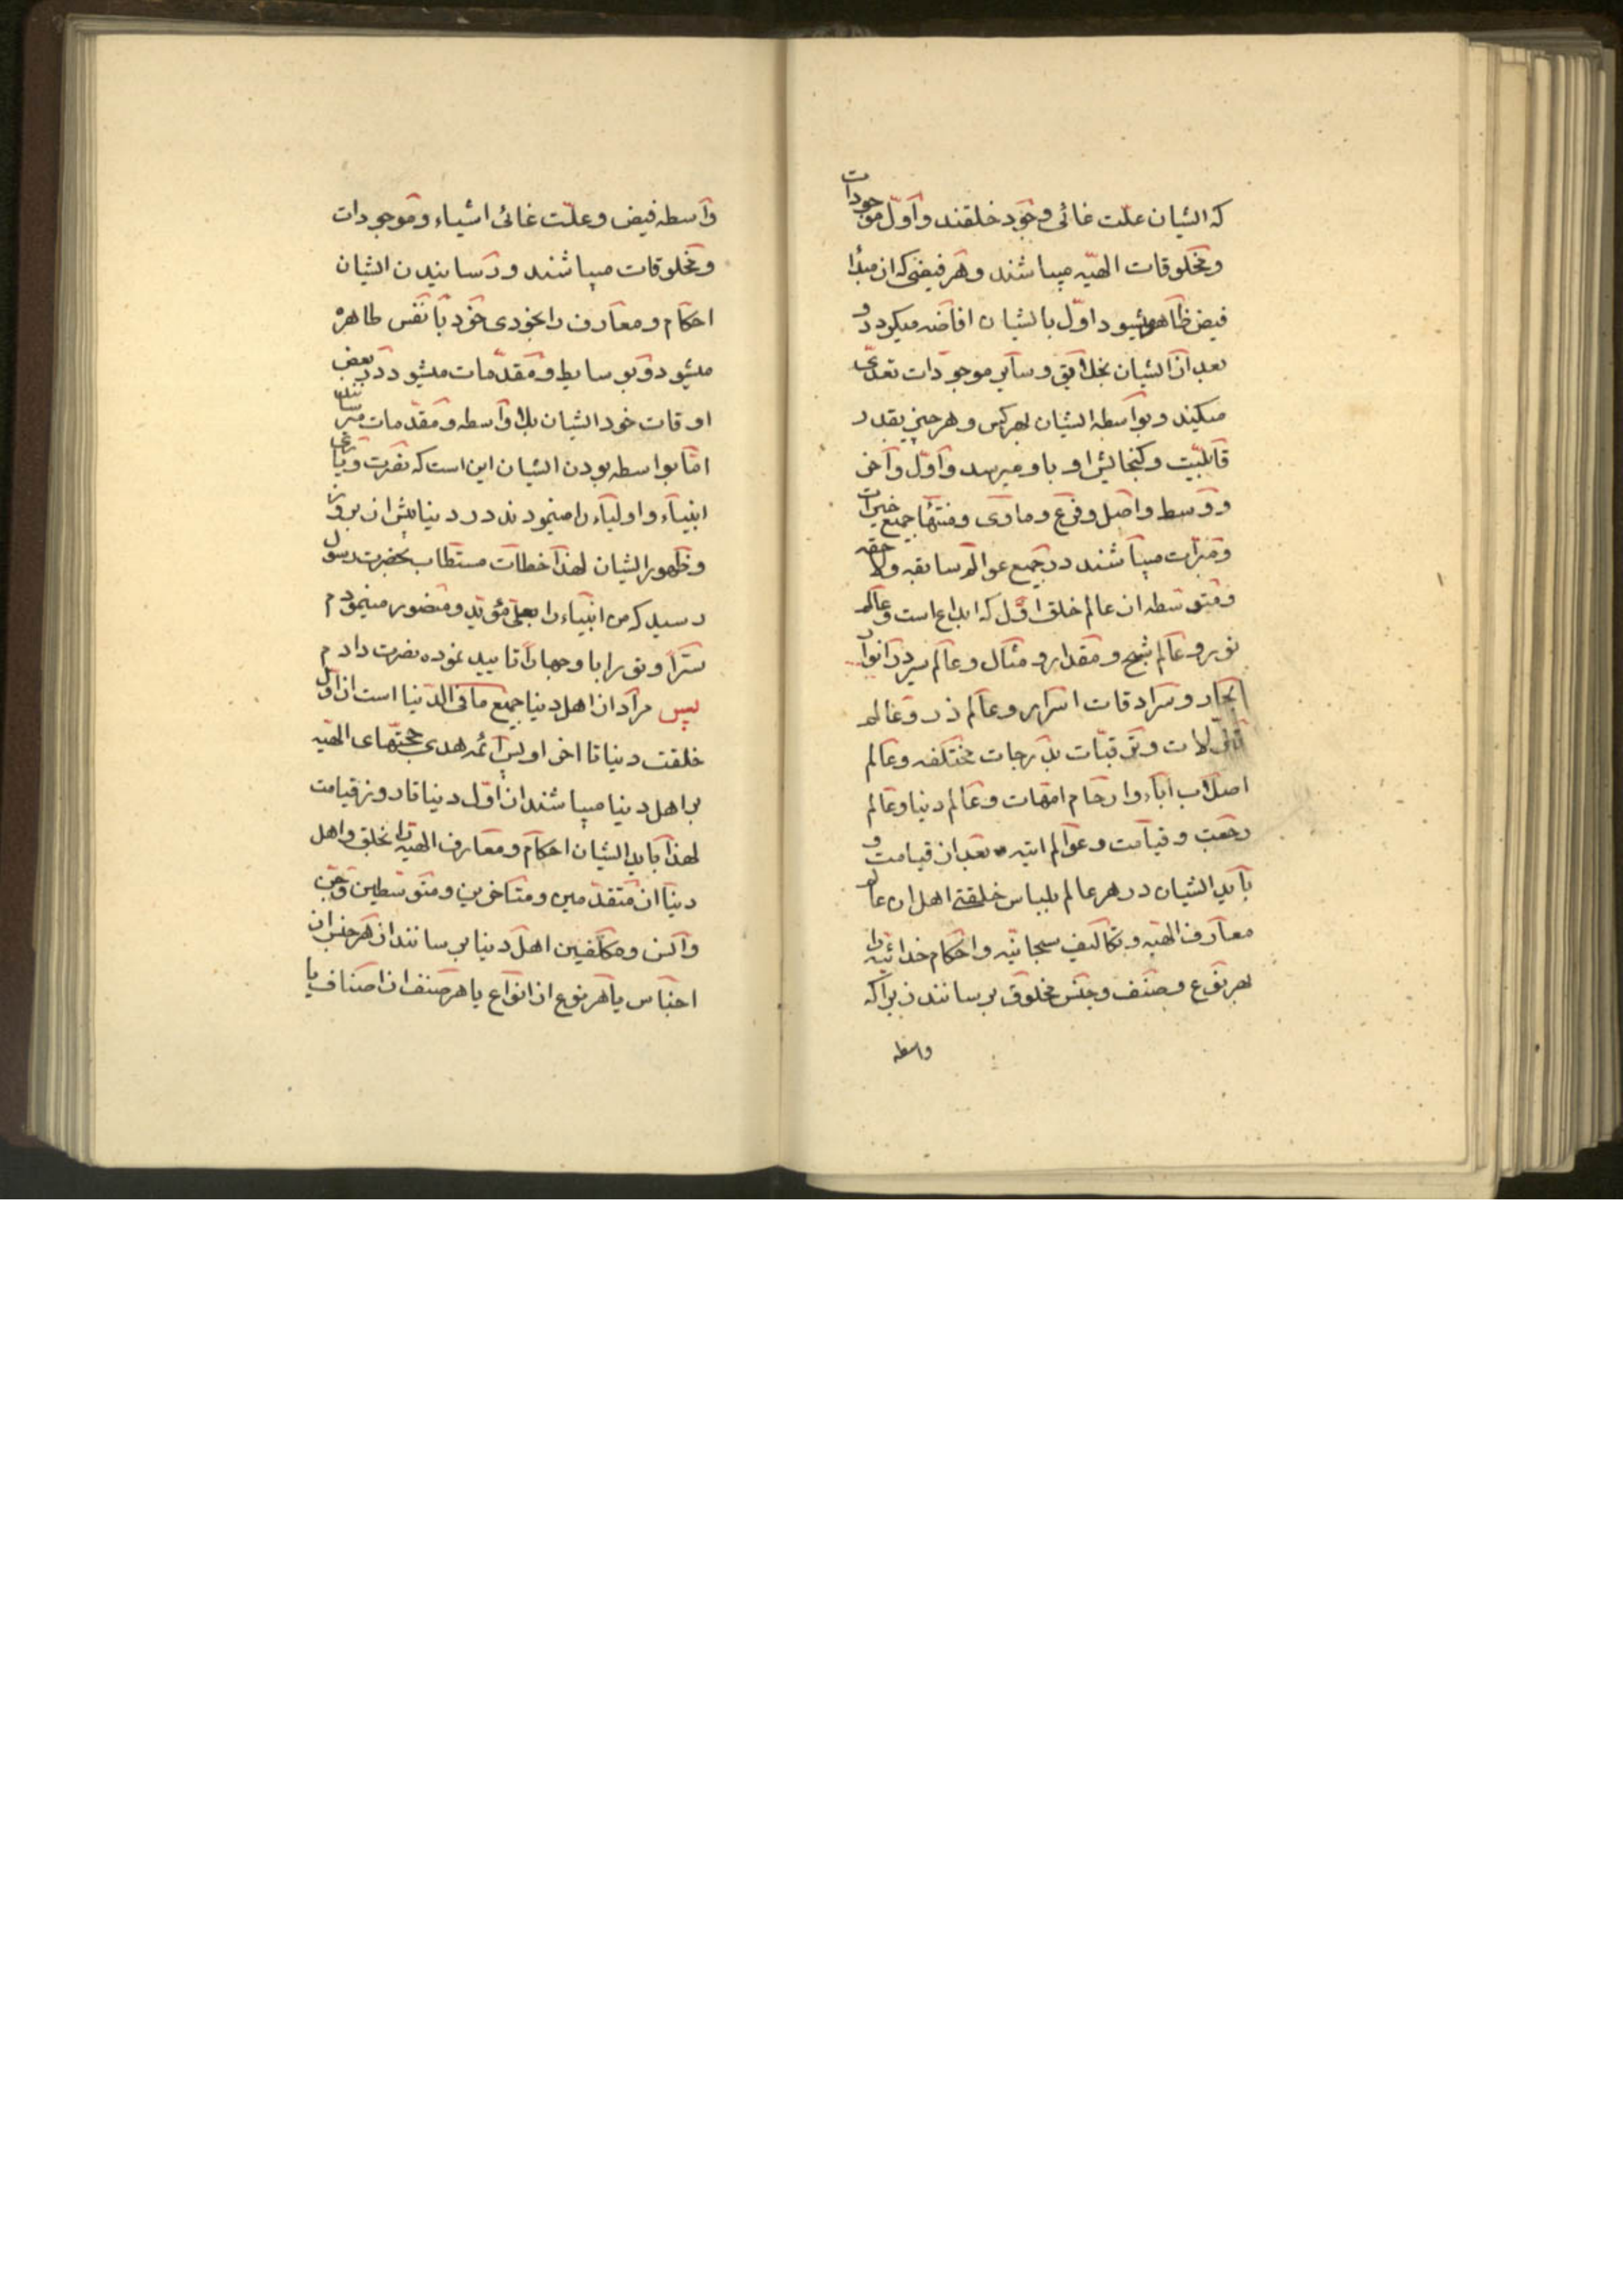 که ایشان علّت غائی وجود خلقند و اوّل موجودات
و مخلوقات الهیّه میباشند و هر فیضی که از مبدأ
فیض ظاهر میشود اوّل بایشان افاضه میکردد و
بعد از ایشان بخلایق و سایر موجودات تعدّی
میکند و بواسطه ایشان بهر کس و هر چیز بقدر
قابلیّت و کنجایش او باو میرسد و اوّل و آخر
و وسط و اصل و فرع و ماوی و منتهی جمیع خیرات
و مبرّات میباشند در جمیع عوالم سابقه و لاحقه
و متوسّطه از عالم خلق اوّل که ابداعست و عالم
نور و عالم شبح و مقدار و مثال و عالم سیر در انوار
بحار و سرادقات اسرار و عالم ذر و عالم
تنزّلات و ترقیّات بدرجات مختلفه و عالم
اصلاب آباء و ارحام امّهات و عالم دنیا و عالم
رجعت و قیامت و عوالم اتیه بعد از قیامت و
باید ایشان در هر عالم بلباس خلقتی اهل ان عالم
معارف الهیّه و تکالیف سبحانیّه و احکام خدائیّه را
بهر نوع و صنف و جنس مخلوق برسانند زیرا که
واسطه
واسطه فیض و علّت غائی اشیاء و موجودات
و مخلوقات میباشند و رسانیدن ایشان
احکام و معارف را بخودی خود با نفس طاهره
میشود و بوسایط و مقدّمات میشود در بعض
اوقات خود ایشان بلا واسطه و مقدّمات میرسانند
امّا بواسطه بودن ایشان این است که نصرت و یاری
انبیاء و اولیاء را مینمودند در دنیا پیش از بروز
و ظهور ایشان لهذا خطاب مستطاب بحضرت رسول
رسید که من انبیاء را بعلی مؤیّد و منصور مینمودم
سرّاً و تو را با و جهاراً تایید نموده نصرت دادم
پس مراد از اهل دنیا جمیع ما فی الدّنیا است از اوّل
خلقت دنیا تا اخر او پس ائمّه هدی حجّتهای الهیّه
بر اهل دنیا میباشند از اوّل دنیا تا روز قیامت
لهذا باید ایشان احکام و معارف الهیّه را بخلق و اهل
دنیا از متقدّمین و متاخّرین و متوسّطین و جن
و انس و مکلّفین اهل دنیا برسانند از هر جنس از
اجناس یا هر نوع از انواع یا هر صنف از اصناف یا